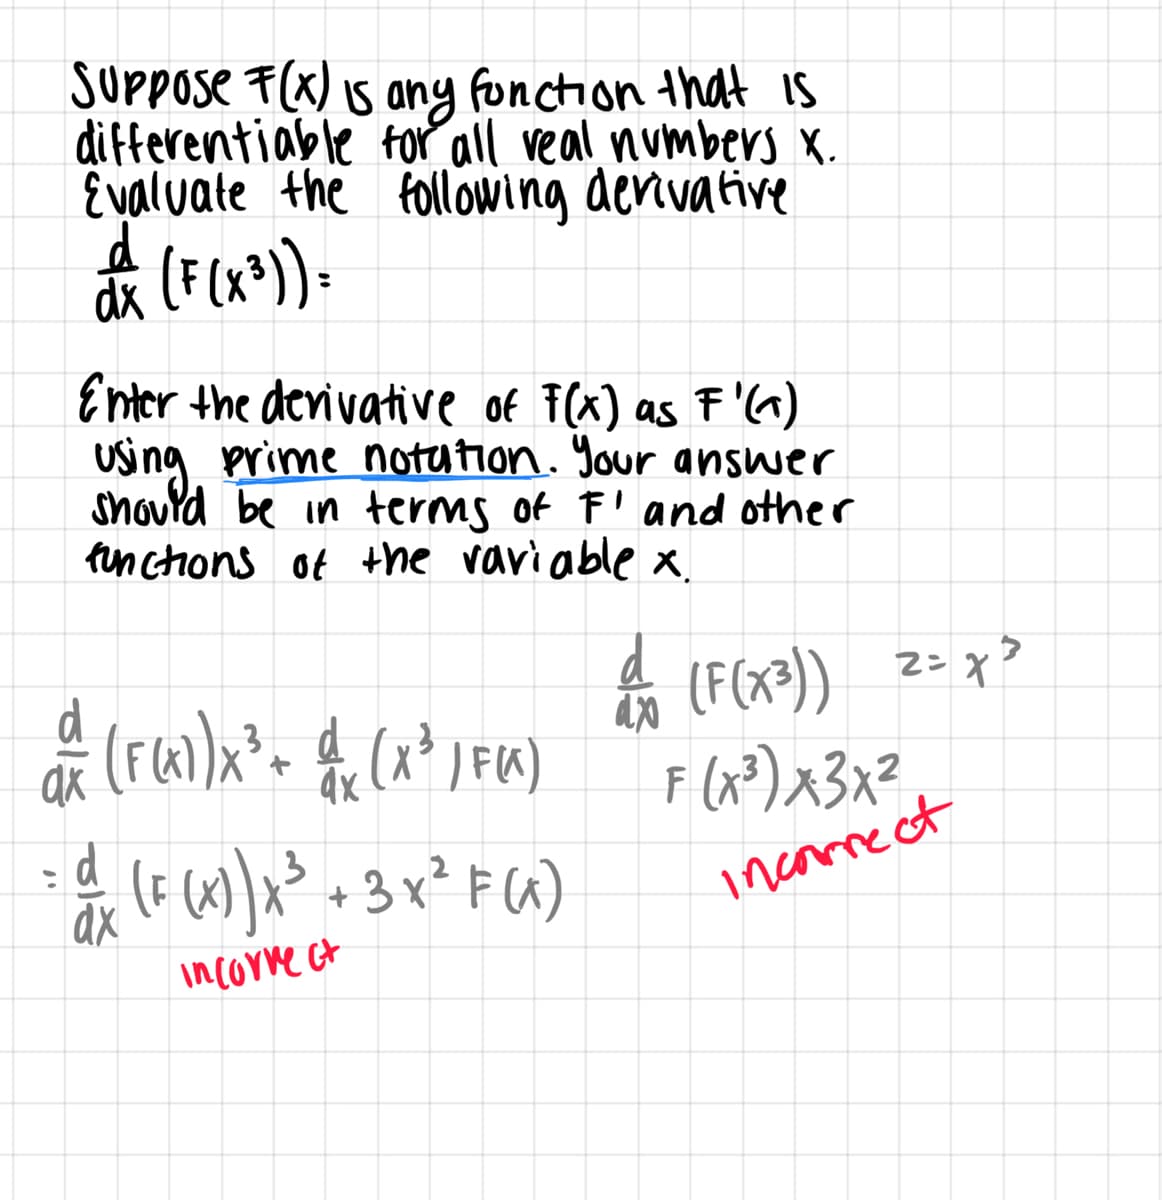 Suppose F(x) is any function that is
differentiable for all real numbers x.
Evaluate the following derivative
d/dx (F(x³))=
Enter the derivative of F(x) as F'(x)
using prime notation. Your answer
should be in terms of F' and other
functions of the variable x.
d/dx (F(x³)) z= x³
F(x³) x 3x²
incorrect
d/dx (F(x))x³ + d/dx (x³)F(x)
= d/dx (F(x))x³ + 3x² F(x)
incorrect